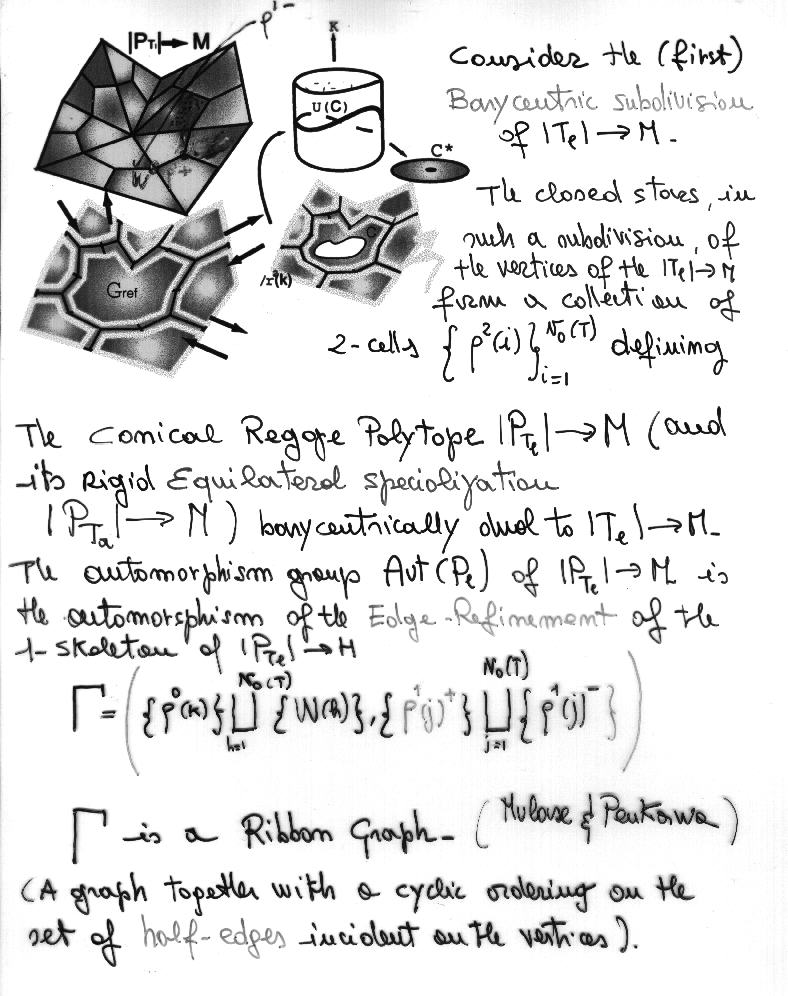 |P_{T_l}|→M
ρ^{1-}
K
U(C)
C*
W
+
G_ref
C
Consider the (first)
Barycentric subdivision
of |T_l|→M.
The closed stars, in
such a subdivision, of
the vertices of the |T_l|→M
form a collection of
2-cells {ρ²(i)}_{i=1}^{N_0(T)} defining
The Conical Regge Polytope |P_{T_l}|→M (and
its Rigid Equilateral specialization
|P_{T_a}|→M) barycentrically dual to |T_l|→M.
The automorphism group Aut(P_l) of |P_{T_l}|→M is
the automorphism of the Edge-Refinement of the
1-skeleton of |P_{T_l}|→M
Γ = ({ρ⁰(k)} ⊔_{h=1}^{N_0(T)} {W(h)}, {ρ¹(j)⁺} ⊔_{j=1}^{N_0(T)} {ρ¹(j)⁻})
Γ is a Ribbon Graph. (Mulase & Penkawa)
(A graph together with a cyclic ordering on the
set of half-edges incident on the vertices).